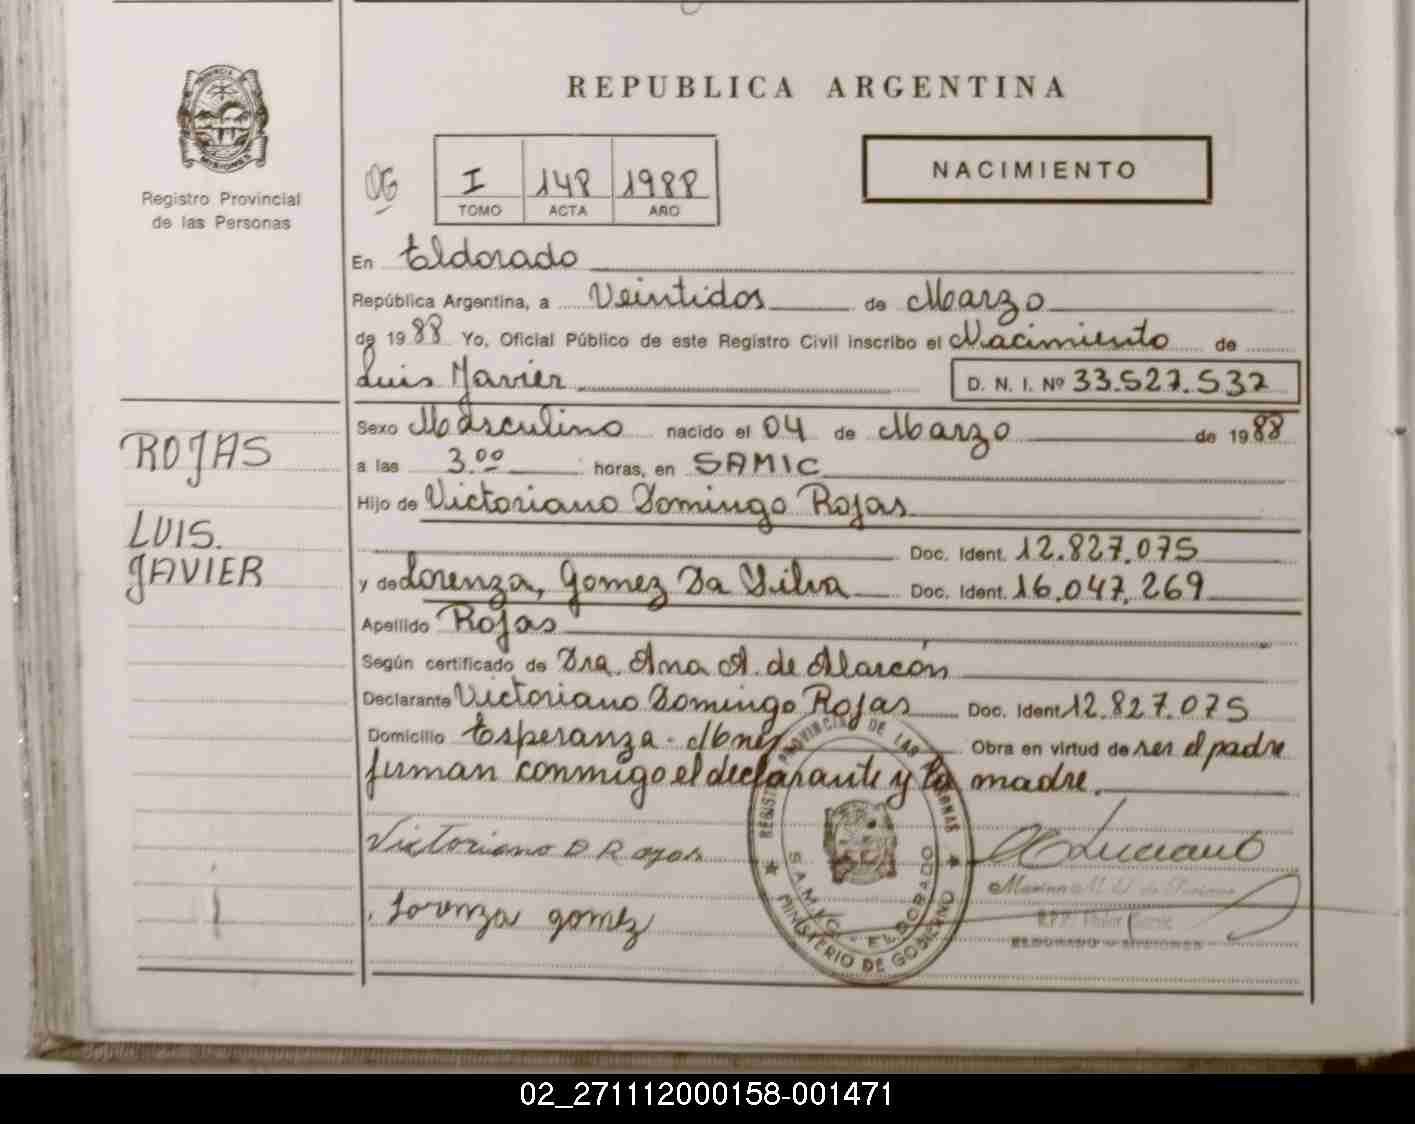 PROVINCIA DE
MISIONES
Registro Provincial
de las Personas
REPUBLICA ARGENTINA
OG
I 148 1988
TOMO ACTA AÑO
NACIMIENTO
En Eldorado
República Argentina, a Veintidos de Marzo
de 1988 Yo, Oficial Público de este Registro Civil inscribo el Nacimiento de
Luis Javier D. N. I. Nº 33.527.537
Sexo Masculino nacido el 04 de Marzo de 1988
a las 3.00 horas, en SAMIC
Hijo de Victoriano Domingo Rojas
Doc. Ident. 12.827.075
y de Lorenza, Gomez Da Silva Doc. Ident. 16.047.269
Apellido Rojas
Según certificado de Dra. Ana A. de Alarcón
Declarante Victoriano Domingo Rojas Doc. Ident 12.827.075
Domicilio Esperanza - Mnes Obra en virtud de ser el padre
firman conmigo el declarante y la madre.
ROJAS
LUIS.
JAVIER
Victoriano D Rojas
Lorenza gomez
Luciano
REGISTRO PROVINCIAL DE LAS PERSONAS
S.A.M.I.C. - ELDORADO
MINISTERIO DE GOBIERNO
ELDORADO - MISIONES
02_271112000158-001471